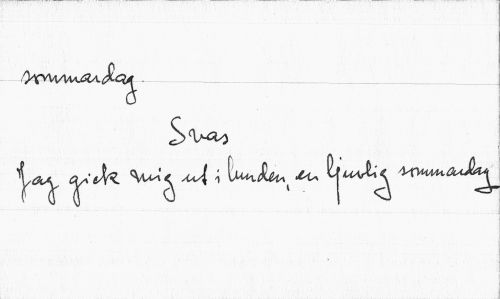 sommardag.
Svas
Jag gick mig ut i lunden, en ljuvlig sommardag